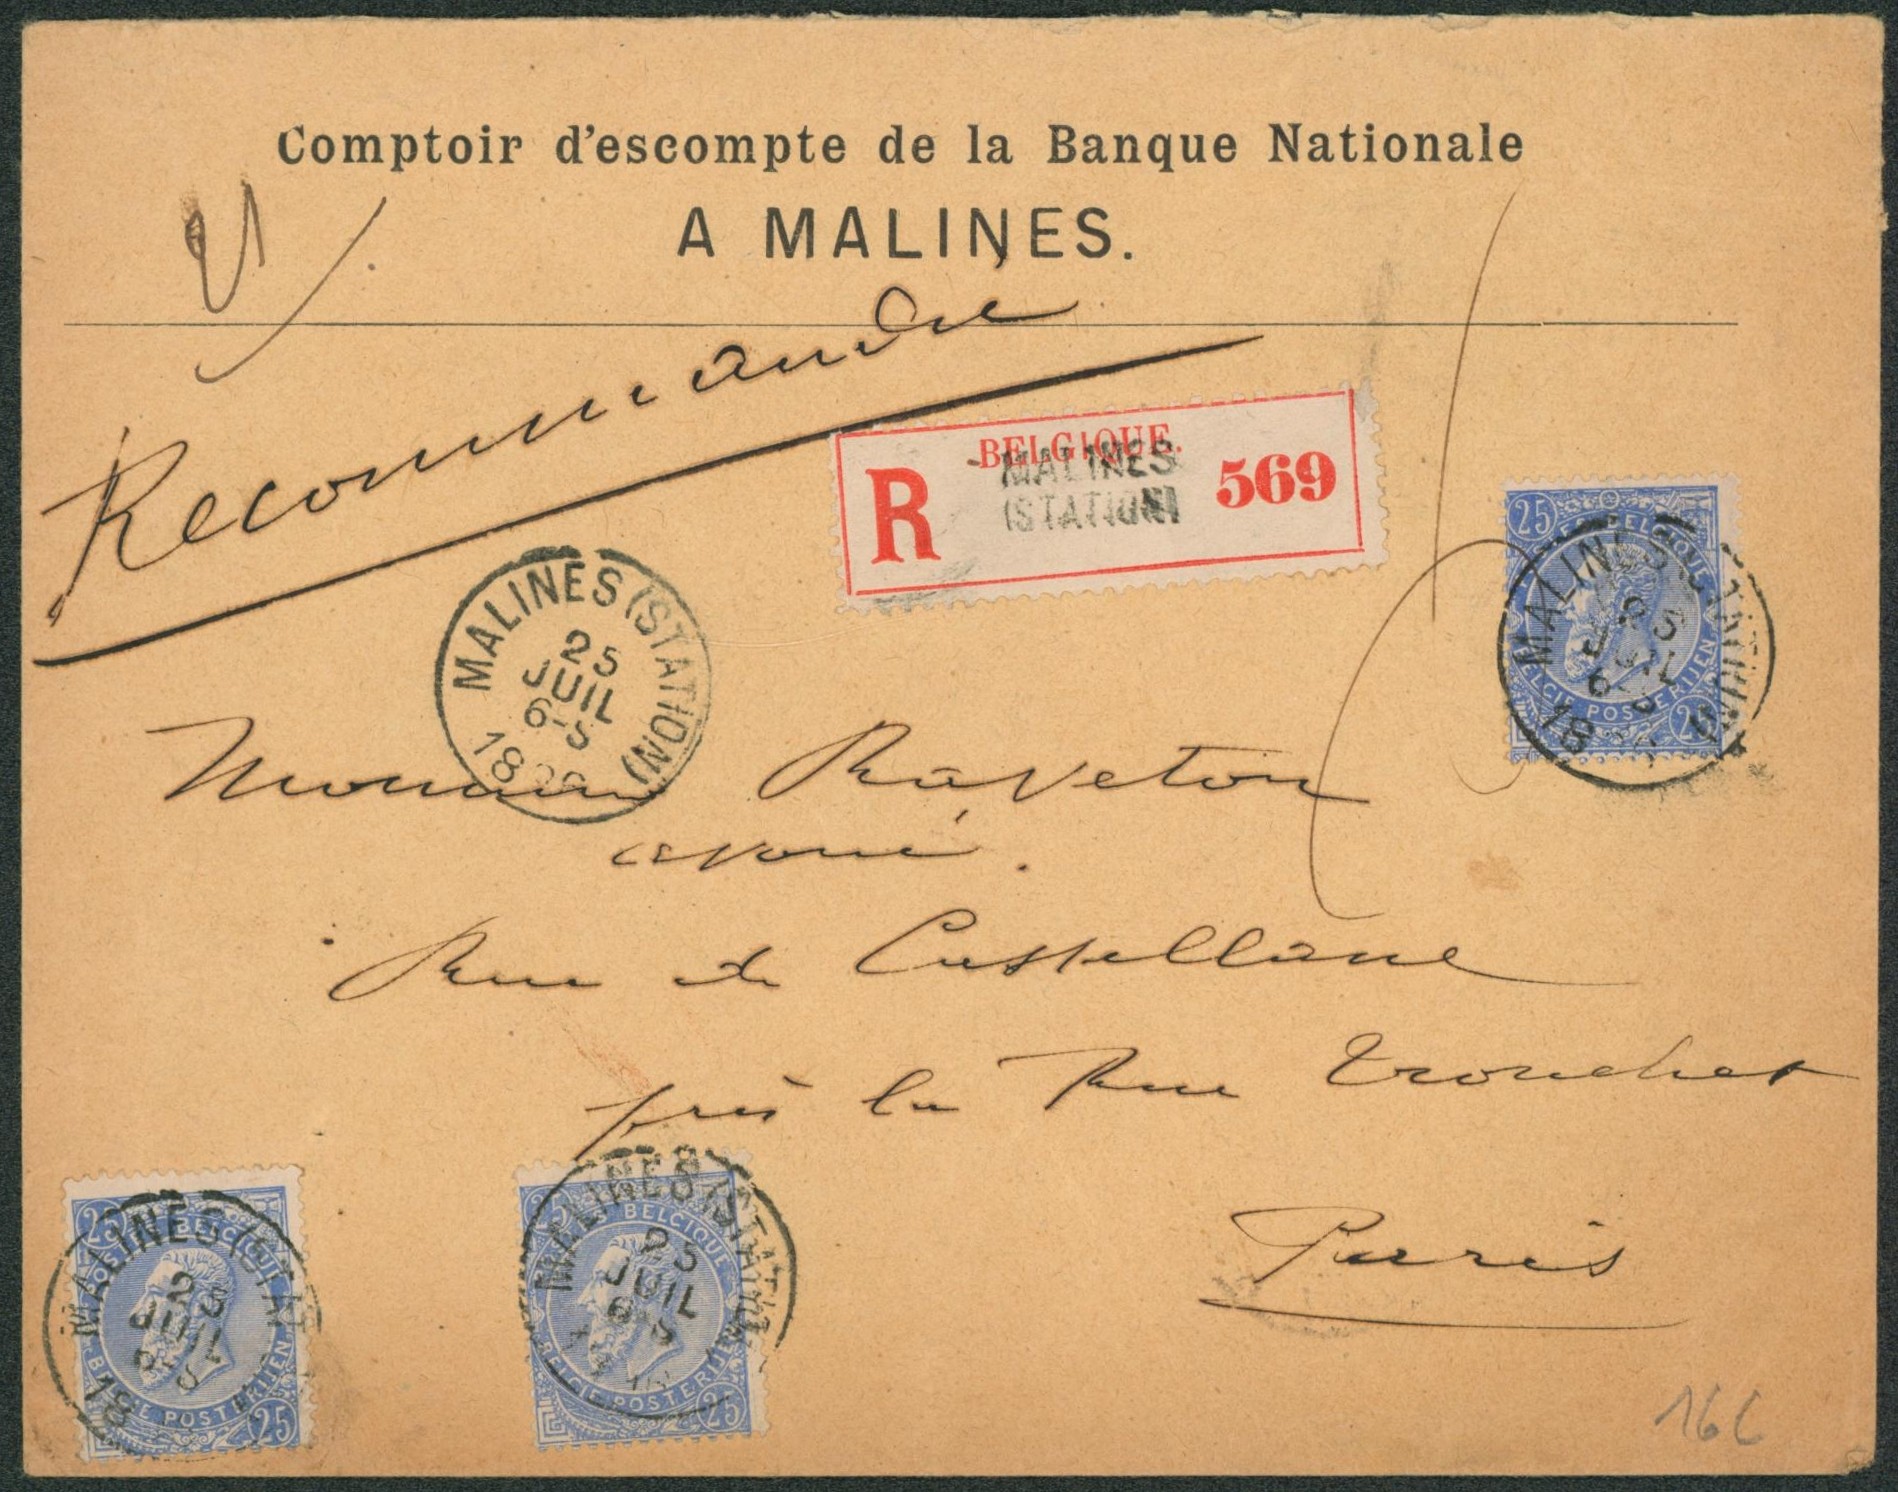 Comptoir d'escompte de la Banque Nationale
A MALINES.
Recommandée
BELGIQUE.
R MALINES 569
(STATION)
25 POSTES BELGIQUE
BELGIE POSTERIJEN 25
MALINES (STATION)
25
JUIL
6-S
18
MALINES (STATION)
25
JUIL
6-S
18
Monsieur Raveton
avoué.
Rue de Castellane
près la Rue Tronchet
Paris
25 POSTES BELGIQUE
BELGIE POSTERIJEN 25
MALINES (STAT
25
JUIL
6-S
18
25 POSTES BELGIQUE
BELGIE POSTERIJEN 25
MALINES (STATION
25
JUIL
6-S
16C